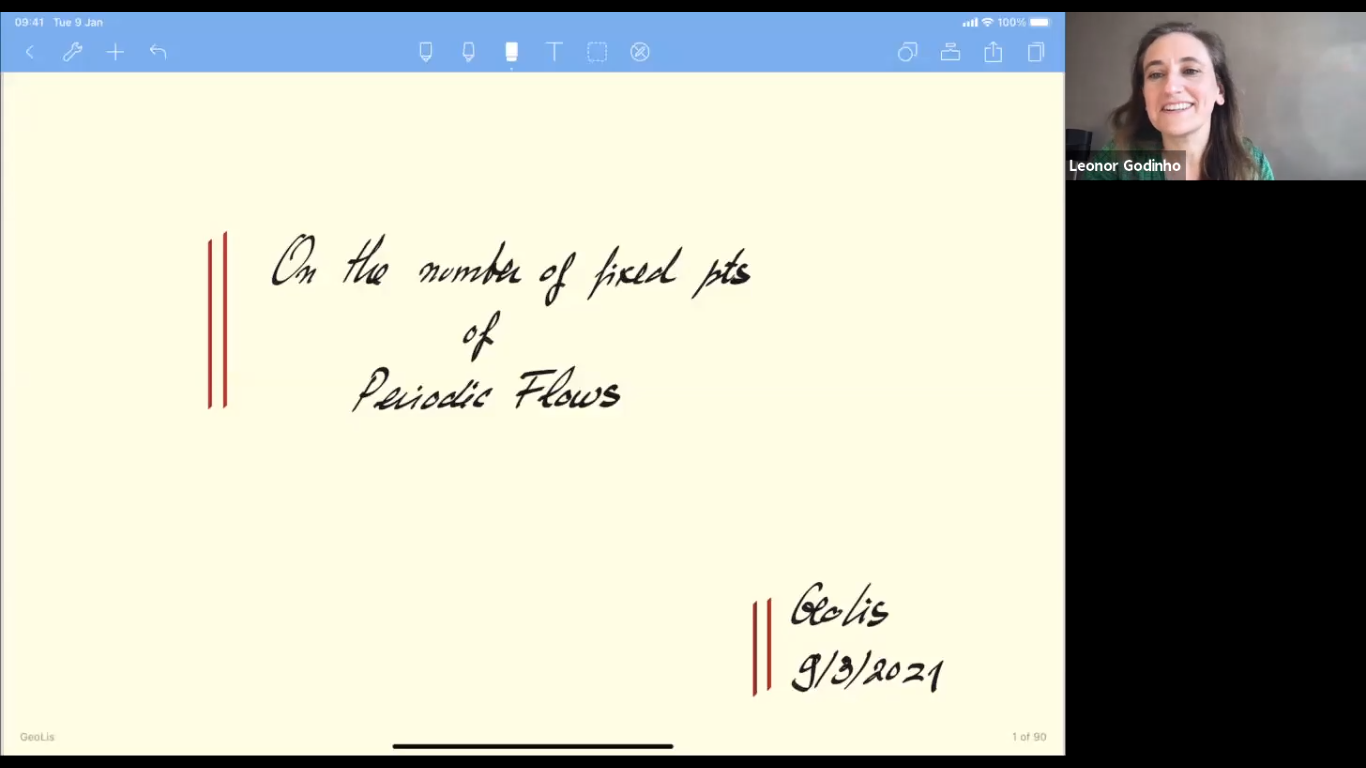 09:41 Tue 9 Jan
100%
T
Leonor Godinho
On the number of fixed pts
of
Periodic Flows
Geolis
9/3/2021
GeoLis
1 of 90